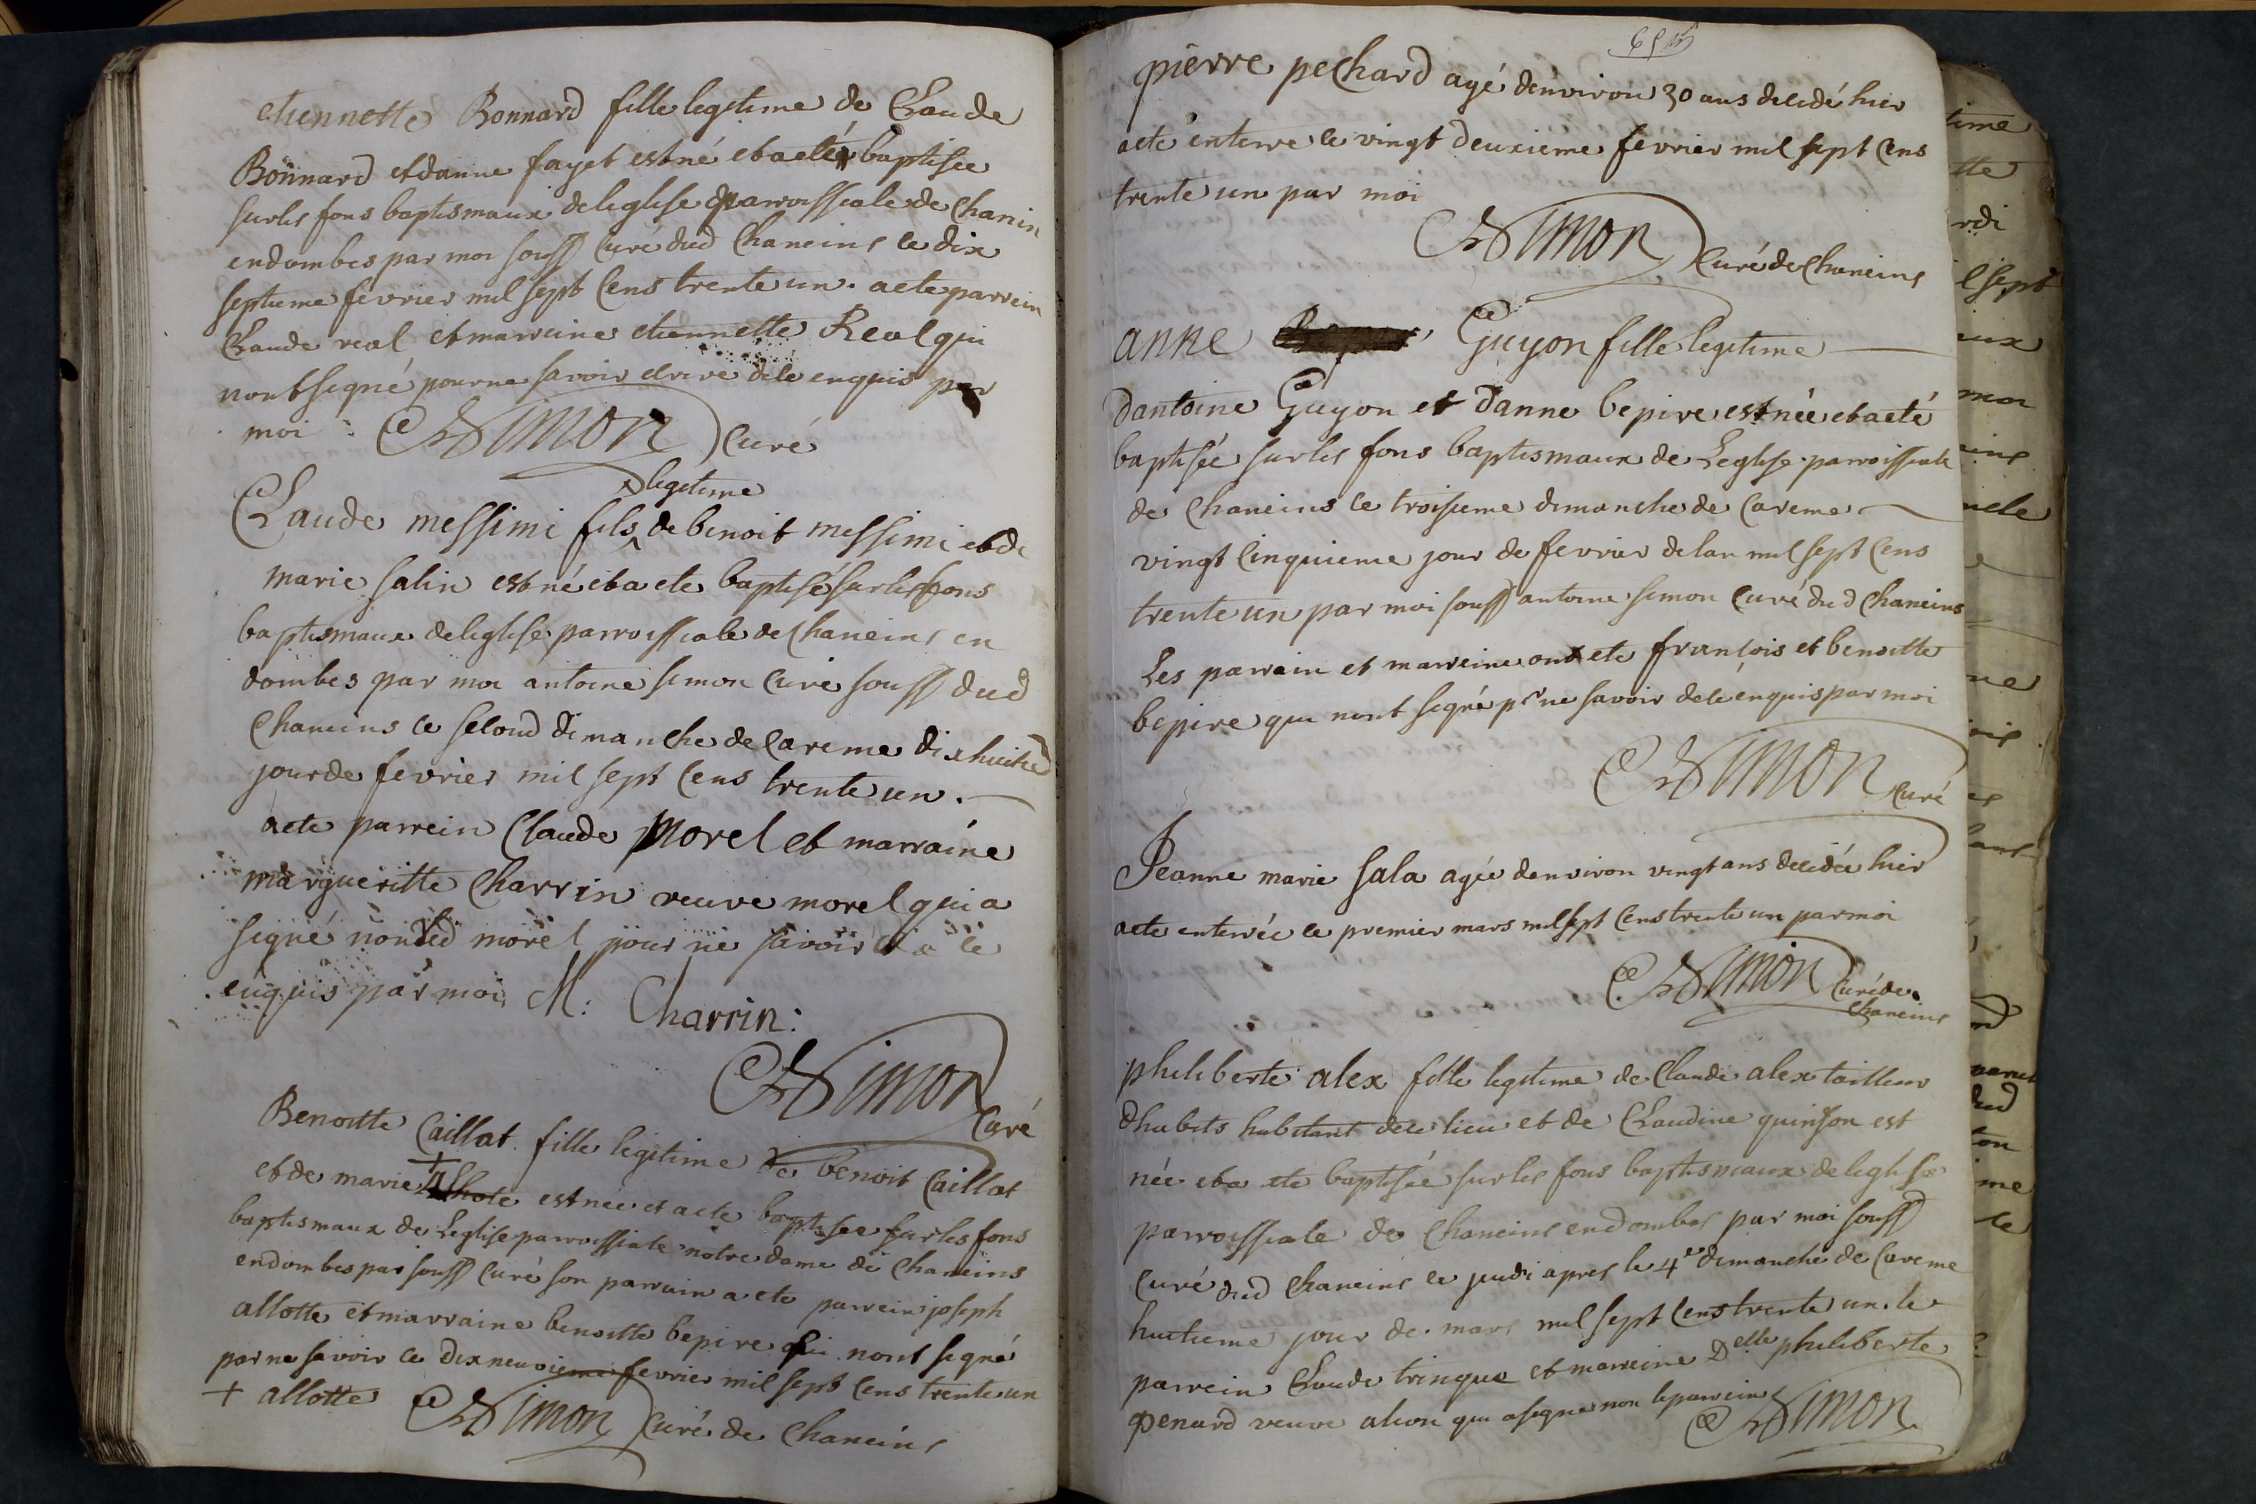 etiennette Bonnard fille legitime de Claude
Bonnard et danne fayet est né et a eté baptisee
sur les fons baptismaux de leglise parroissiale de Chanin
en dombes par moi souss curé dud Chaneins le dix
septieme fevrier mil sept cens trente un. a ete parrein
Claude real et marreine etiennette Real qui
nont signé pour ne savoir ecrire de ce enquis par
moi ASimon Curé
legitime
Claude messimi fils de benoit messimi et de
marie salin est né et a ete baptisé sur les fons
baptismaux de leglise parroissiale de Chaneins en
dombes par moi antoine simon curé souss dud
Chaneins ce second dimanche de Careme dixhuitie
jour de fevrier mil sept cens trente un.
a ete parrein Claude Morel et marraine
margueritte Charrin veuve morel qui a
signé non led morel pour ne savoir de ce
enquis par moi M: Charrin:
ASimon
Curé
Benoitte Caillat fille legitime de benoit Caillat
et de marie + est née et a ete baptisee sur les fons
baptismaux de Leglise parroissiale notre dame de Chaneins
en dombes par souss curé son parrain a ete parrein joseph
allotte et marraine benoitte bepire qui nont signé
par ne savoir ce dix neuvieme fevrier mil sept cens trente un
+ allotte ASimon Curé de Chaneins
65
pierre pechard agé denviron 30 ans decedé hier
a eté enterre le vingt deuxieme fevrier mil sept cens
trente un par moi
ASimon
Curé de Chaneins
anne Guyon fille legitime
dantoine Guyon et danne bepire est née et a eté
baptisée sur les fons baptismaux de Leglise parroissiale
de Chaneins ce troisieme dimanche de Careme
vingt cinquieme jour de fevrier de lan mil sept cens
trente un par moi souss antoine simon Curé dud Chaneins
Les parrain et marreine ont ete francois et benoitte
bepire qui nont signé pr ne savoir de ce enquis par moi
ASimon Curé
Jeanne marie sala agée denviron vingt ans decedée hier
a ete enterrée ce premier mars mil sept cens trente un par moi
ASimon Curé de
Chaneins
philiberte alex fille legitime de Claude alex tailleur
dhabits habitant de ce lieu et de Claudine quinson est
née et a ete baptisée sur les fons baptismaux de leglise
parroissiale de Chaneins en dombes par moi souss
curé dud Chaneins ce jeudi apres le 4e dimanche de Careme
huitieme jour de mars mil sept cens trente un. le
parrein Claude trinque et marreine Delle philiberte
penard veuve alion qui a signé non le parrein
ASimon